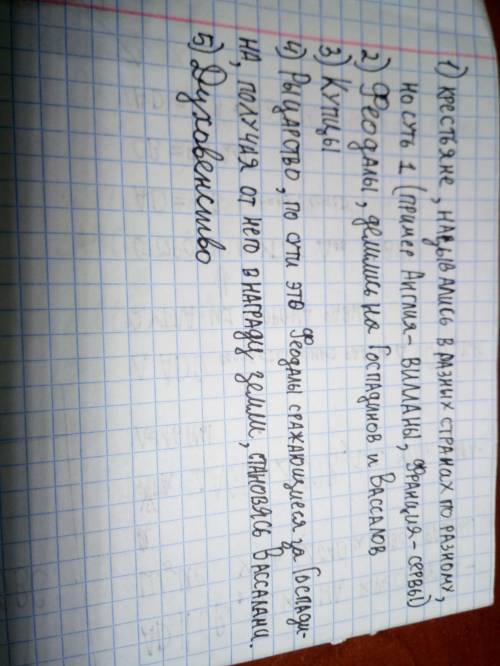 1) крестьяне, назывались в разных странах по разному,
но суть 1 (пример Англия - виланы, Франция - сервы)
2) Феодалы, делились на Госпадинов и Вассалов
3) Купцы
4) Рыцарство, по сути это Феодалы сражающиеся за Госпади-
на, получая от него в награду земли, становясь Вассалами.
5) Духовенство